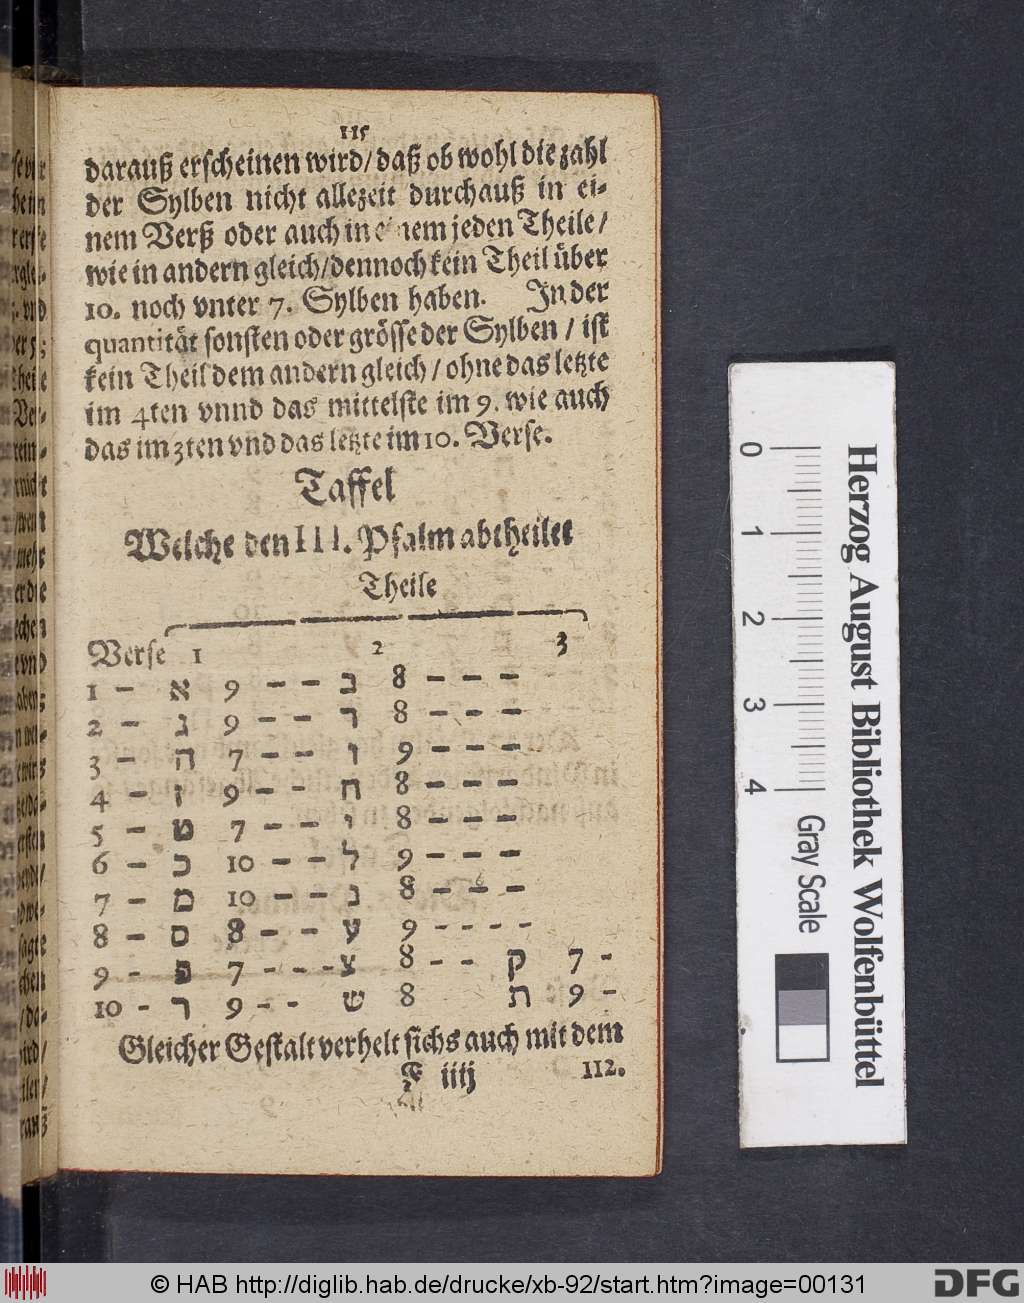 115
darauß erscheinen wird/ daß ob wohl die zahl
der Sylben nicht allezeit durchauß in ei-
nem Verß oder auch in einem jeden Theile/
wie in andern gleich/ dennoch kein Theil über
10. noch vnter 7. Sylben haben. In der
quantität sonsten oder grösse der Sylben / ist
kein Theil dem andern gleich / ohne das letzte
im 4ten vnnd das mittelste im 9. wie auch
das im 3ten vnd das letzte im 10. Verse.
Taffel
Welche den III. Psalm abtheilet
Theile
Verse 1 2 3
1 - א 9 - - ב 8 - - -
2 - ג 9 - - ד 8 - - -
3 - ה 7 - - ו 9 - - -
4 - ז 9 - - ח 8 - - -
5 - ט 7 - - י 8 - - -
6 - כ 10 - - ל 9 - - -
7 - מ 10 - - נ 8 - - -
8 - ס 8 - - ע 9 - - - -
9 - פ 7 - - - צ 8 - - ק 7 -
10 - ר 9 - - ש 8 ת 9 -
Gleicher Gestalt verhelt sichs auch mit dem
iiij 112.
Herzog August Bibliothek Wolfenbüttel
0 1 2 3 4
Gray Scale
© HAB http://diglib.hab.de/drucke/xb-92/start.htm?image=00131
DFG